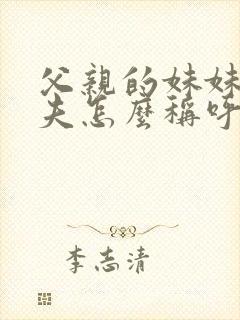 父親的妹妹
夫怎麼稱呼
李志清